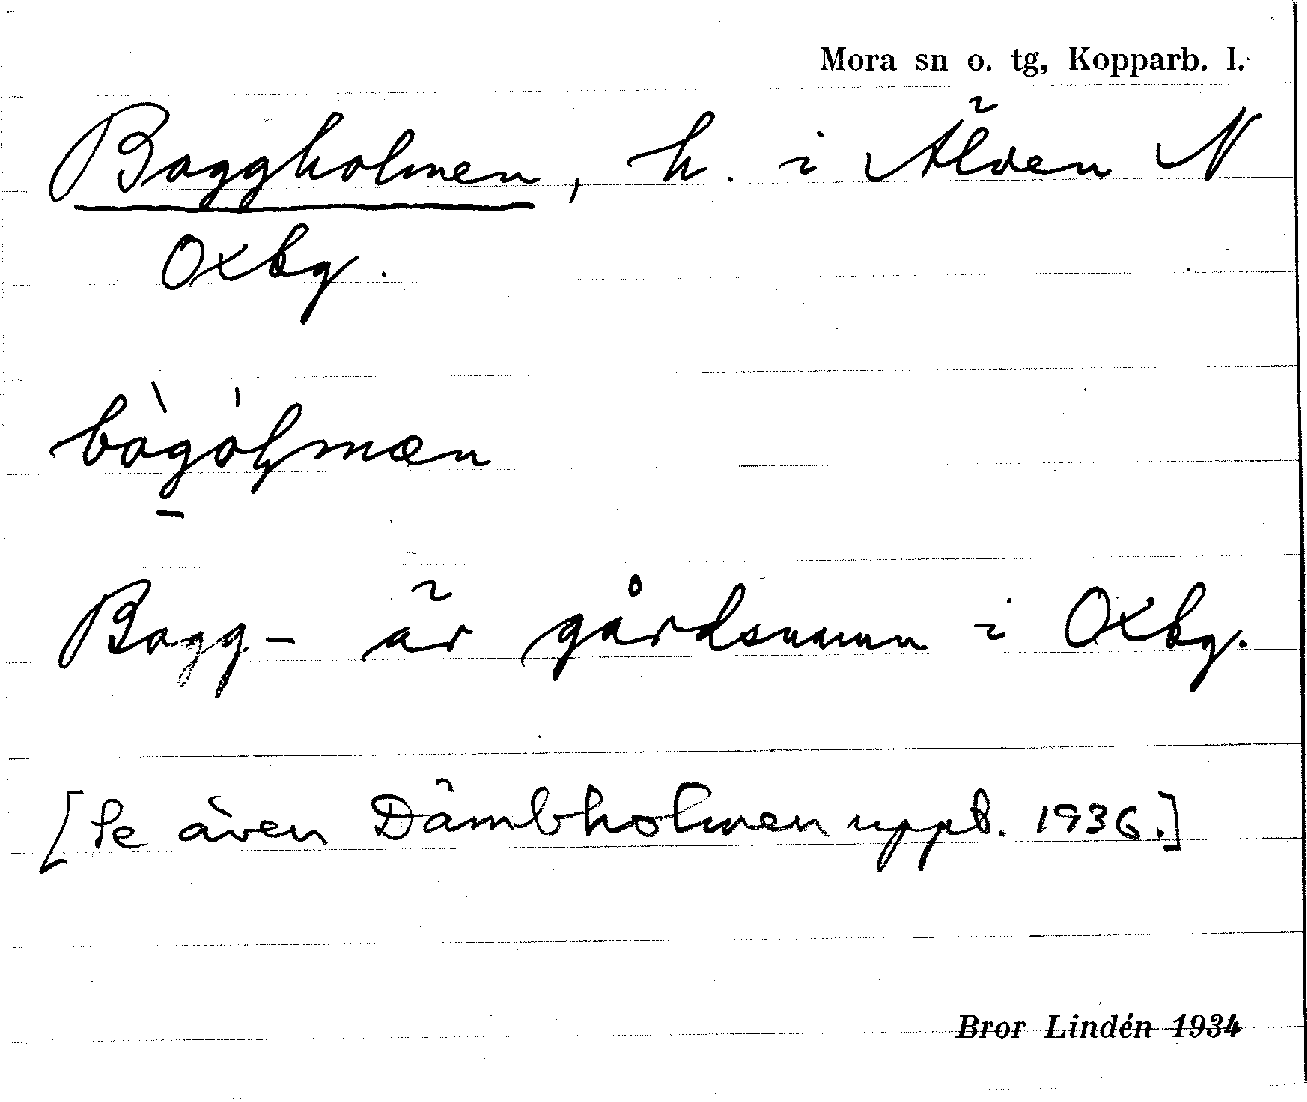 Mora sn o. tg, Kopparb. l.
Baggholmen, h. i Älven N
Oxbg.
bàgòl̨mæn
Bagg- är gårdsnamn i Oxbg.
[Se även Dämbholmen uppt. 1936.]
Bror Lindén 1934